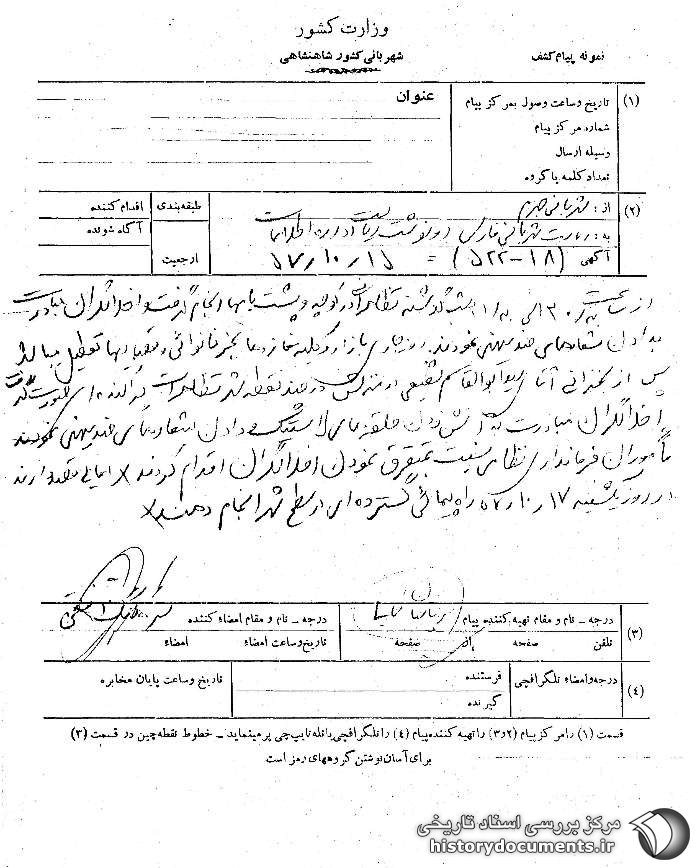 وزارت کشور
شهربانی کشور شاهنشاهی
نمونه پیام کشف
(۱)
تاریخ و ساعت وصول بمرکز پیام
عنوان
شماره مرکز پیام
وسیله ارسال
تعداد کلمه یا گروه
(۲)
از: شهربانی جهرم
طبقه‌بندی
اقدام کننده
به: ریاست شهربانی فارس رونوشت ریاست اداره اطلاعات
آگاه شونده
آگهی (۱۸-۵۲۲) = ۵۷/۱۰/۱۵
ارجعیت
از ساعت شب گذشته تظاهرات در کوچه و پشت بامها انجام گرفت و اخلالگران مبادرت
به دادن شعارهای ضد میهنی نمودند. روز جاری بازار و کلیه مغازه‌ها بجز نانوائی و قصابیها تعطیل میباشد
پس از سخنرانی آقای ابوالقاسم شفیعی در چند نقطه شهر تظاهرات پراکنده‌ای صورت گرفت
اخلالگران مبادرت به آتش زدن حلقه‌های لاستیک و دادن شعارهای ضد میهنی نمودند
مأموران فرمانداری نظامی نسبت بمتفرق نمودن اخلالگران اقدام کردند × اهالی قصد دارند
در روز یکشنبه ۵۷/۱۰/۱۷ راه پیمائی گسترده‌ای در سطح شهر انجام دهند ×
(۳)
درجه - نام و مقام تهیه کننده پیام
درجه - نام و مقام امضاء کننده
تلفن صفحه از صفحه
تاریخ و ساعت امضاء امضاء
(۴)
درجه و امضاء تلگرافچی
فرستنده
تاریخ و ساعت پایان مخابره
گیرنده
قسمت (۱) را مرکز پیام (۲و۳) را تهیه کننده پیام (۴) را تلگرافچی یا تله تایپ‌چی پر مینماید - خطوط نقطه‌چین در قسمت (۲)
برای آسان نوشتن گروههای رمز است
مرکز بررسی اسناد تاریخی
historydocuments.ir